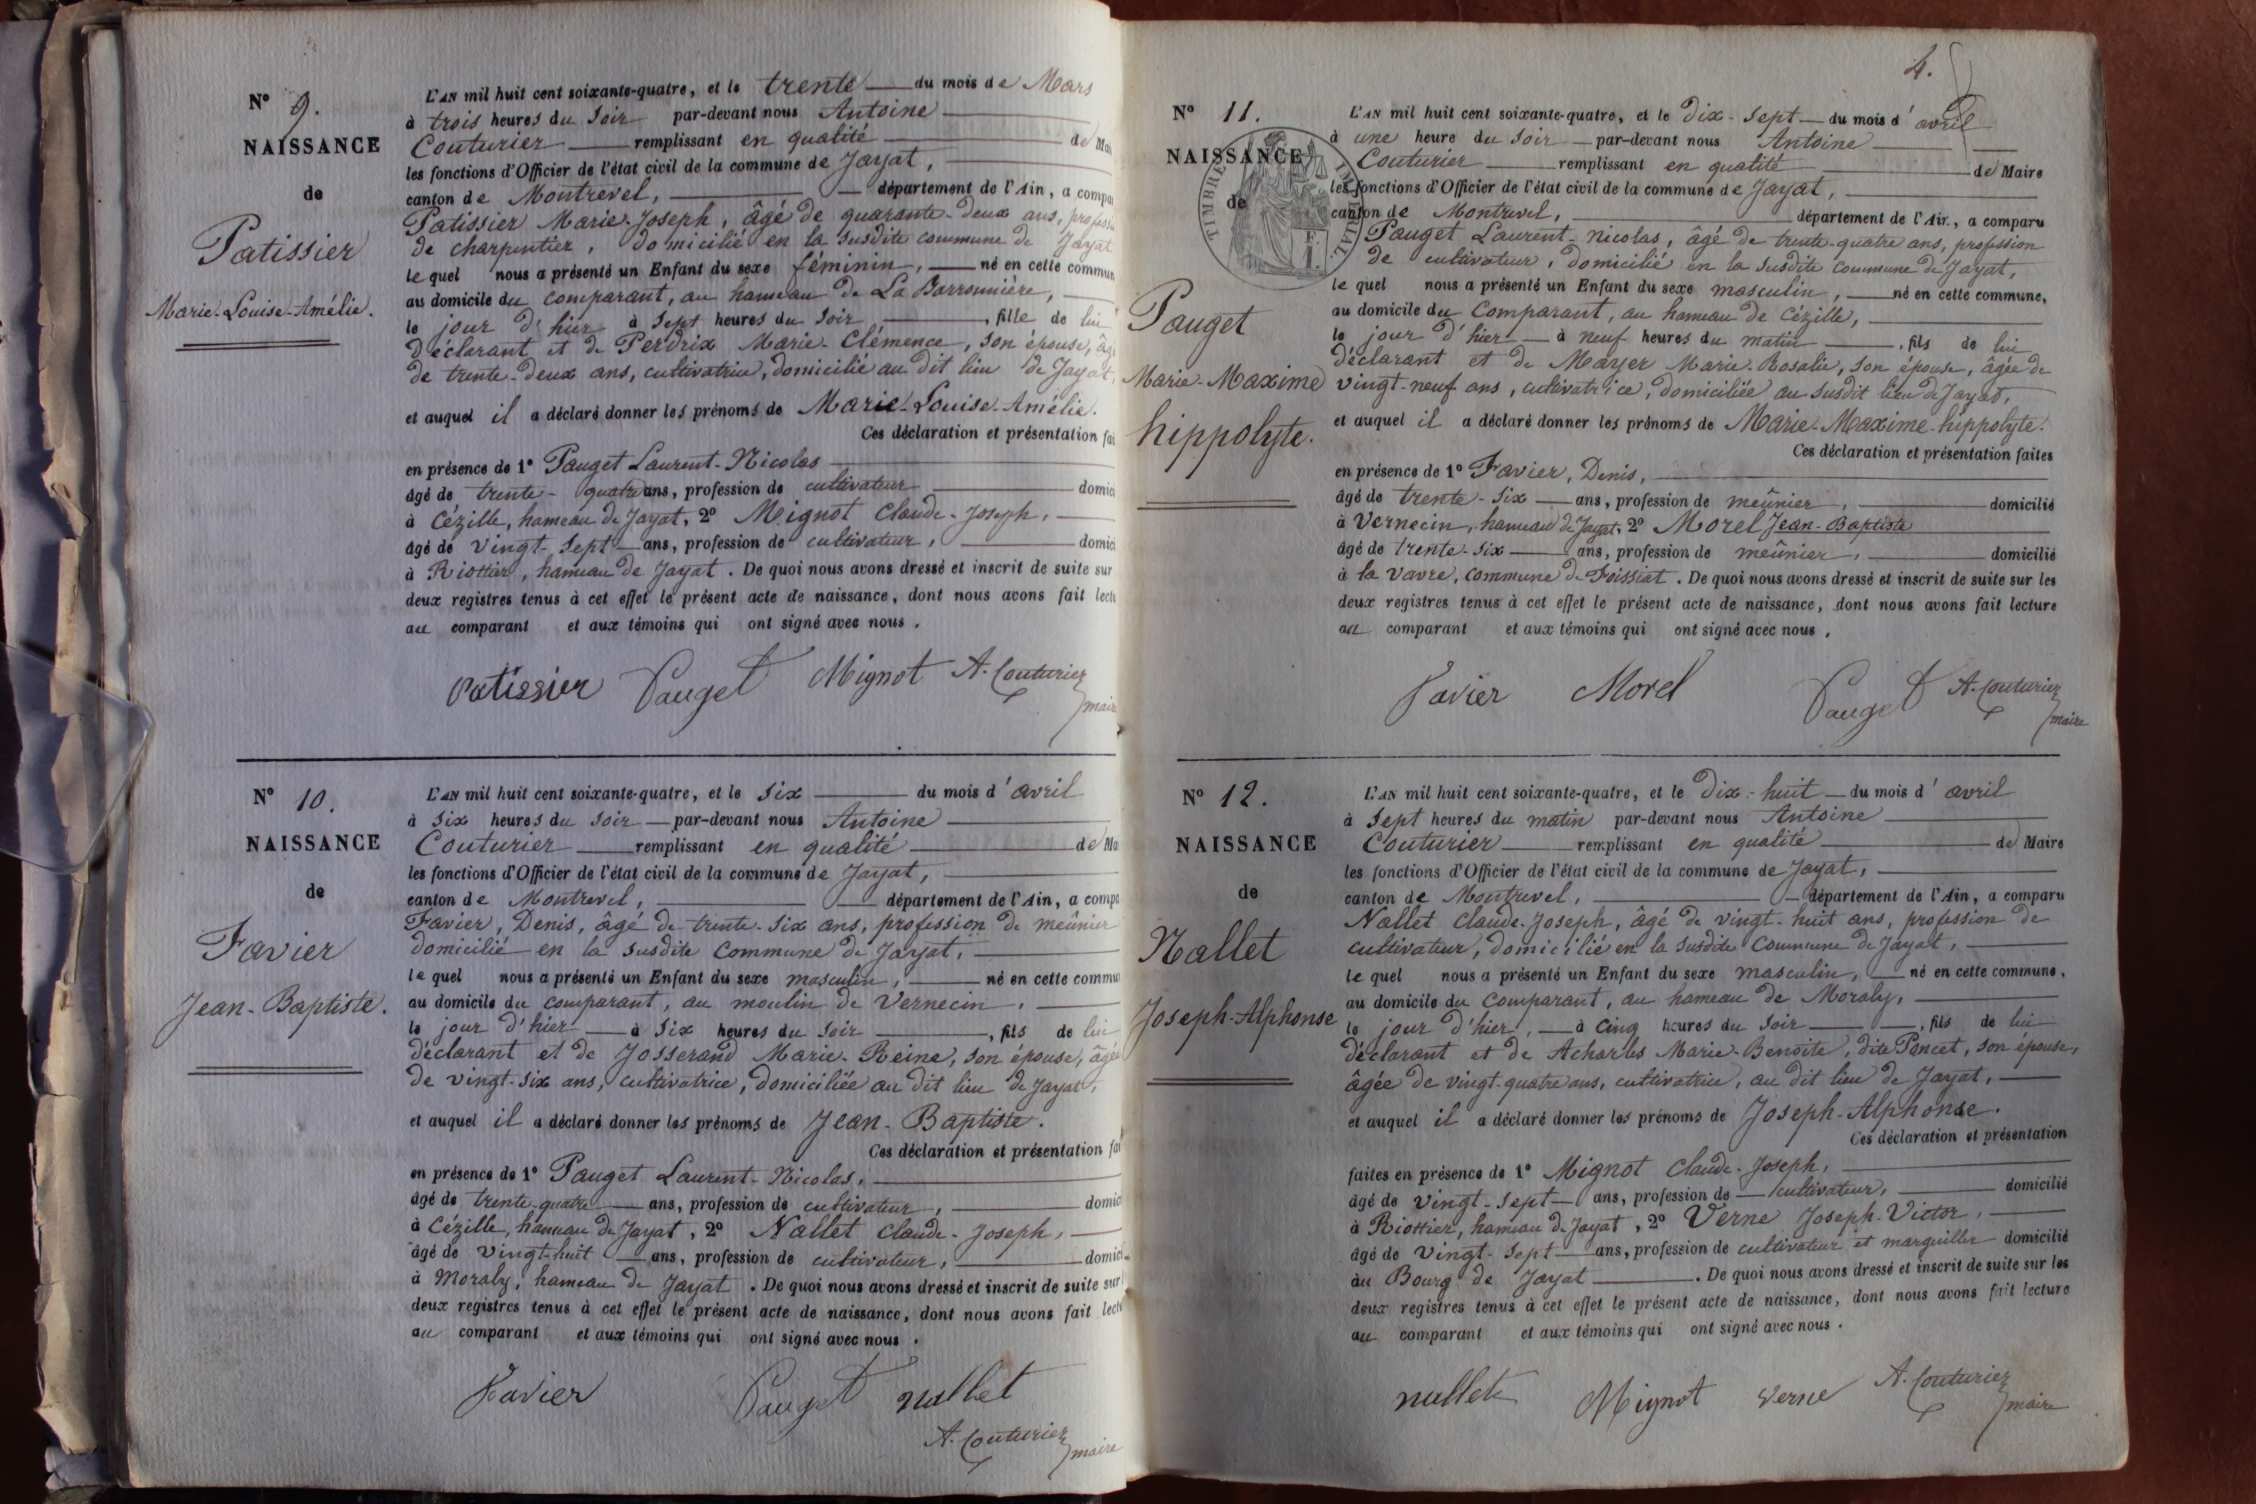 N° 9.
NAISSANCE
de
Patissier
Marie-Louise-Amélie.
L'AN mil huit cent soixante-quatre, et le trente du mois de Mars
à trois heures du soir par-devant nous Antoine
Couturier remplissant en qualité de
les fonctions d'Officier de l'état civil de la commune de Jayat,
canton de Montrevel, département de l'Ain, a
Patissier Marie-Joseph, âgé de quarante-deux ans,
de charpentier, domicilié en la susdite commune de Jayat
le quel nous a présenté un Enfant du sexe féminin, né en cette
au domicile du comparant, au hameau de La
le jour d'hier à sept heures du soir, fille de lui
déclarant et de Perdrix Marie-Clémence, son épouse,
de trente-deux ans, cultivatrice, domicilié au dit lieu de Jayat,
et auquel il a déclaré donner les prénoms de Marie-Louise-Amélie.
Ces déclaration et présentation
en présence de 1° Pauget Laurent-Nicolas
âgé de trente-quatre ans, profession de cultivateur
à Cézille, hameau de Jayat, 2° Mignot Claude-Joseph,
âgé de vingt-sept ans, profession de cultivateur,
à Riottier, hameau de Jayat. De quoi nous avons dressé et inscrit de suite sur
deux registres tenus à cet effet le présent acte de naissance, dont nous avons fait
au comparant et aux témoins qui ont signé avec nous.
Patissier Pauget Mignot A. Couturier
maire
N° 10.
NAISSANCE
de
Favier
Jean-Baptiste.
L'AN mil huit cent soixante-quatre, et le six du mois d'avril
à six heures du soir par-devant nous Antoine
Couturier remplissant en qualité de
les fonctions d'Officier de l'état civil de la commune de Jayat,
canton de Montrevel, département de l'Ain, a
Favier, Denis, âgé de trente-six ans, profession de meûnier
domicilié en la susdite commune de Jayat,
le quel nous a présenté un Enfant du sexe masculin, né en cette
au domicile du comparant, au moulin de Vernecin,
le jour d'hier à six heures du soir, fils de lui
déclarant et de Josserand Marie-Reine, son épouse, âgée
de vingt-six ans, cultivatrice, domiciliée au dit lieu de Jayat,
et auquel il a déclaré donner les prénoms de Jean-Baptiste.
Ces déclaration et présentation
en présence de 1° Pauget Laurent-Nicolas,
âgé de trente-quatre ans, profession de cultivateur,
à Cézille, hameau de Jayat, 2° Nallet Claude-Joseph,
âgé de vingt-huit ans, profession de cultivateur,
à Moraly, hameau de Jayat. De quoi nous avons dressé et inscrit de suite sur
deux registres tenus à cet effet le présent acte de naissance, dont nous avons fait
au comparant et aux témoins qui ont signé avec nous.
Favier Pauget nallet
A. Couturier
maire
4.
N° 11.
NAISSANCE
de
TIMBRE IMPERIAL
Pauget
Marie-Maxime
hippolyte.
L'AN mil huit cent soixante-quatre, et le dix-sept du mois d'avril
à une heure du soir par-devant nous Antoine
Couturier remplissant en qualité de Maire
les fonctions d'Officier de l'état civil de la commune de Jayat,
canton de Montrevel, département de l'Ain, a comparu
Pauget Laurent-Nicolas, âgé de trente-quatre ans, profession
de cultivateur, domicilié en la susdite commune de Jayat,
le quel nous a présenté un Enfant du sexe masculin, né en cette commune,
au domicile du comparant, au hameau de Cézille,
le jour d'hier à neuf heures du matin, fils de lui
déclarant et de Mayer Marie-Rosalie, son épouse, âgée de
vingt-neuf ans, cultivatrice, domiciliée au susdit lieu de Jayat,
et auquel il a déclaré donner les prénoms de Marie-Maxime-hippolyte.
Ces déclaration et présentation faites
en présence de 1° Favier, Denis,
âgé de trente-six ans, profession de meûnier, domicilié
à Vernecin, hameau de Jayat, 2° Morel Jean-Baptiste
âgé de trente-six ans, profession de meûnier, domicilié
à la vavre, commune de Foissiat. De quoi nous avons dressé et inscrit de suite sur les
deux registres tenus à cet effet le présent acte de naissance, dont nous avons fait lecture
au comparant et aux témoins qui ont signé avec nous.
Favier Morel Pauget A. Couturier
maire
N° 12.
NAISSANCE
de
Nallet
Joseph-Alphonse
L'AN mil huit cent soixante-quatre, et le dix-huit du mois d'avril
à sept heures du matin par-devant nous Antoine
Couturier remplissant en qualité de Maire
les fonctions d'Officier de l'état civil de la commune de Jayat,
canton de Montrevel, département de l'Ain, a comparu
Nallet Claude-Joseph, âgé de vingt-huit ans, profession de
cultivateur, domicilié en la susdite commune de Jayat,
le quel nous a présenté un Enfant du sexe masculin, né en cette commune,
au domicile du comparant, au hameau de Moraly,
le jour d'hier, à cinq heures du soir, fils de lui
déclarant et de Acharles Marie-Benoite, dite Poncet, son épouse,
âgée de vingt-quatre ans, cultivatrice, au dit lieu de Jayat,
et auquel il a déclaré donner les prénoms de Joseph-Alphonse.
Ces déclaration et présentation
faites en présence de 1° Mignot Claude-Joseph,
âgé de vingt-sept ans, profession de cultivateur, domicilié
à Riottier, hameau de Jayat, 2° Verne Joseph-Victor,
âgé de vingt-sept ans, profession de cultivateur et marguiller domicilié
au Bourg de Jayat. De quoi nous avons dressé et inscrit de suite sur les
deux registres tenus à cet effet le présent acte de naissance, dont nous avons fait lecture
au comparant et aux témoins qui ont signé avec nous.
nallet Mignot Verne A. Couturier
maire